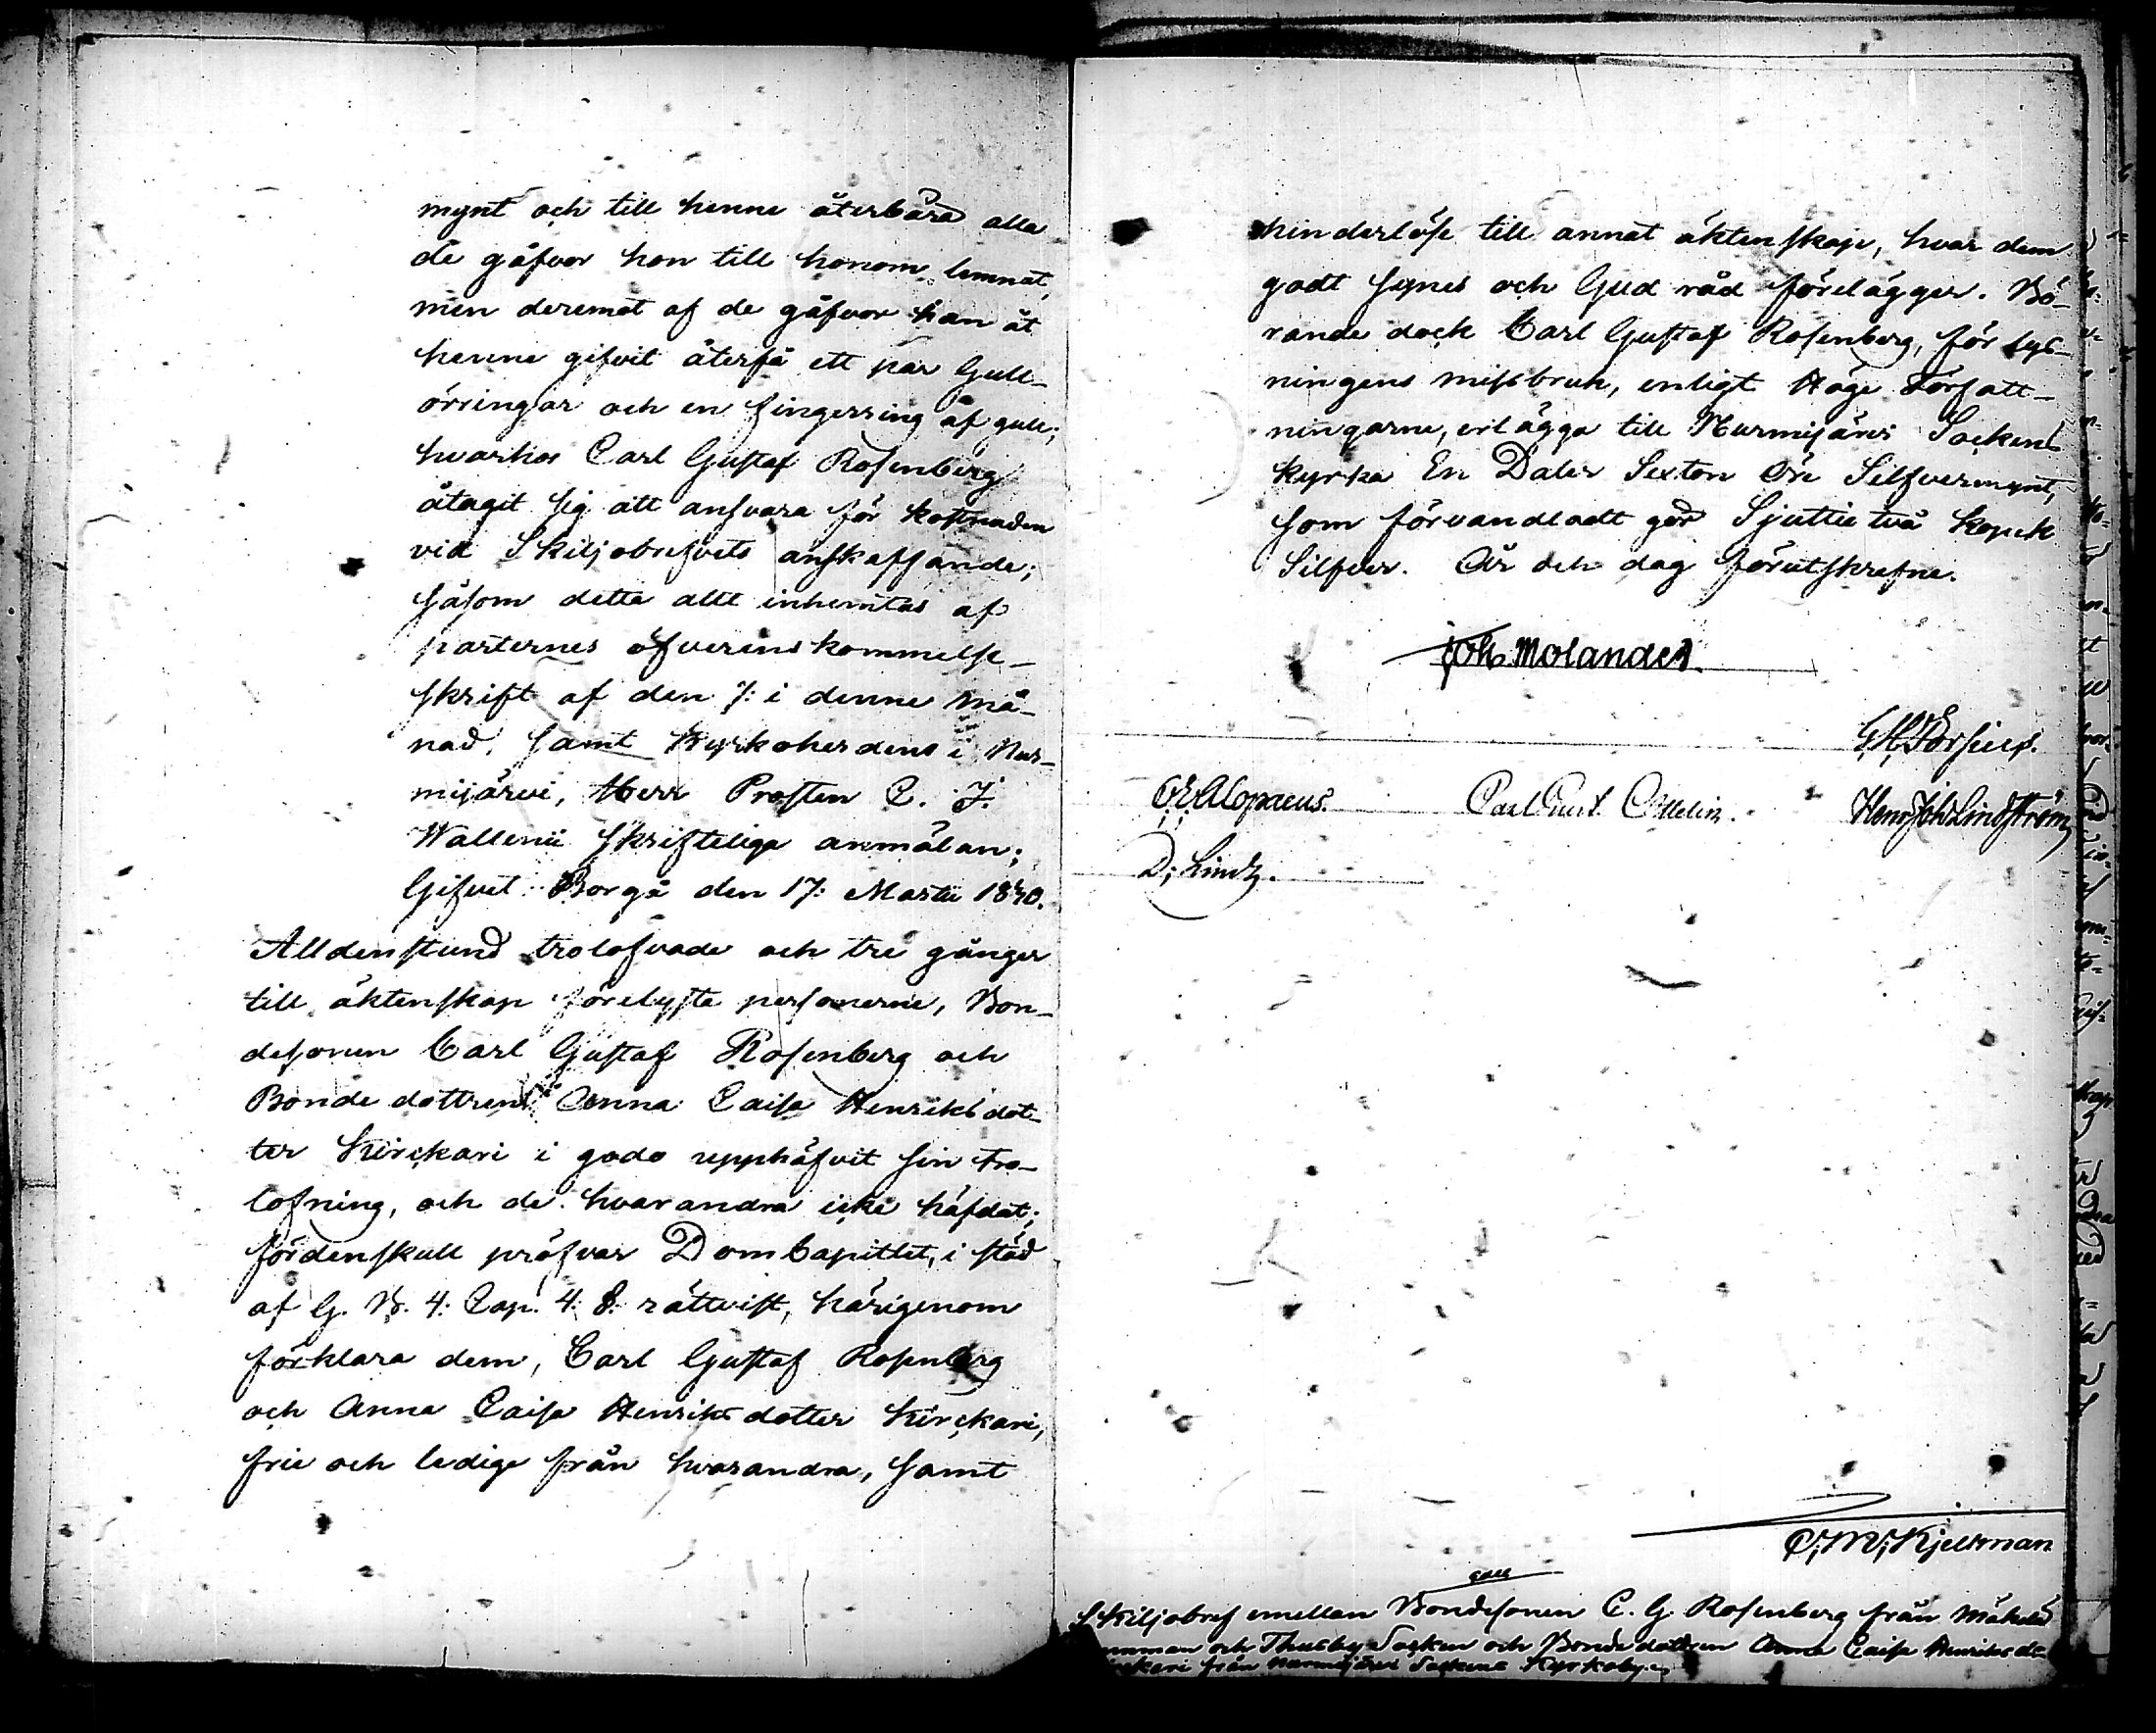 mynt och till henne återbära alla
de gåfvor hon till honom lemnat,
men deremot af de gåfvor han åt
henne gifvit återfå ett par Gull-
örringar och en fingerring af gull;
hvarhos Carl Gustaf Rosenberg
åtagit sig att ansvara för kostnaden
vid Skiljobrefvets anskaffande;
såsom detta allt inhemtas af
parternes öfverenskommelse-
skrift af den 7: i denne må-
nad, samt Kyrkoherdens i Nur-
mijärvi, Herr Prosten C. J.
Wallenii skrifteliga anmälan;
Gifvet Borgå den 17: Martii 1840.
Alldenstund trolofvade och tre gånger
till äktenskap förelyste personerne, Bon-
desonen Carl Gustaf Rosenberg och
Bonde dottren Anna Caisa Henriksdot-
ter Kirckari i godo upphäfvit sin tro-
lofning, och de hvarandra icke häfdat;
fördenskull pröfvar DomCapitlet, i stöd
af G. B. 4: Cap. 4: §. rättvist, härigenom
förklara dem, Carl Gustaf Rosenberg
och Anna Caisa Henriksdotter Kirckari,
frie och ledige från hvarandra, samt
hinderlöse till annat äktenskap, hvar dem
godt synes och Gud råd förelägger. Bö-
rande dock Carl Gustaf Rosenberg, för lys-
ningens missbruk, enligt Höge Författ-
ningarne, erlägga till Nurmijärvi Sockens
kyrka En Daler Sexton Öre Silfvermynt,
som förvandladt gör Sjuttie två kopek
Silfver. År och dag förutskrefne.
Joh. Molander.
G. H. Forsius.
O. E. Alopæus. Carl Gust. Ottelin. Henr. Joh. Lindström
D. Lindh.
C. M. Kjellman
Skiljobref emellan Bondesonen C. G. Rosenberg från Mäkelä
och Thusby Socken och Bondedottren Anna Caisa Henriksdr
från Nurmijärvi Sockens Kyrkoby.